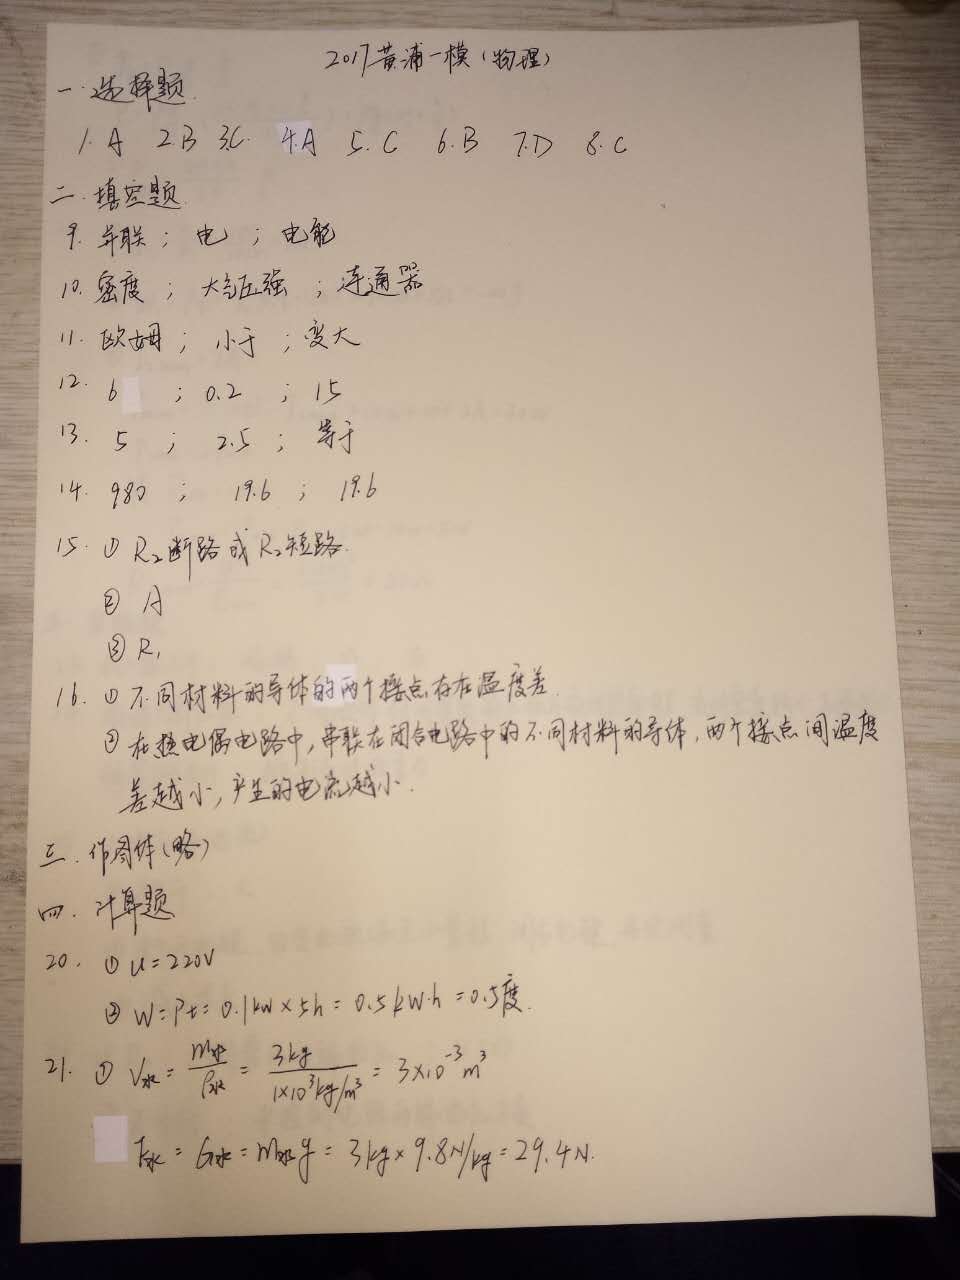 2017黄浦一模(物理)
一.选择题
1.A 2.B 3.C. 4.A 5.C 6.B 7.D 8.C
二.填空题
9.并联; 电; 电能
10.密度; 大气压强; 连通器
11.欧姆; 小于; 变大
12. 6; 0.2; 15
13. 5; 2.5; 等于
14. 980; 19.6; 19.6
15.① R₂断路或R₂短路.
② A
③ R₁
16.① 不同材料的导体的两个接点存在温度差.
② 在热电偶电路中,串联在闭合电路中的不同材料的导体,两个接点间温度
差越小,产生的电流越小.
三.作图体(略)
四.计算题
20.① U=220V
② W=Pt=0.1kW×5h=0.5kW·h=0.5度.
21.① V水=m水/ρ水=3kg/1×10³kg/m³=3×10⁻³m³
F水=G水=m水g=3kg×9.8N/kg=29.4N.